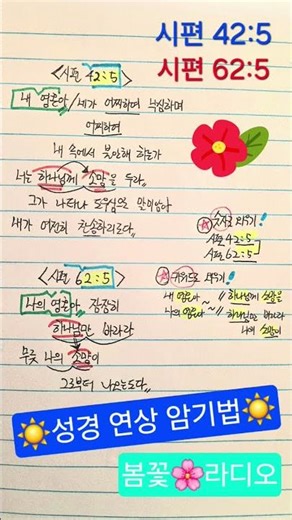 시편 42:5
시편 62:5
<시편 42:5>
내 영혼아/네가 어찌하여 낙심하며
어찌하여
내 속에서 불안해 하는가
너는 하나님께 소망을 두라
그가 나타나 도우심으로 말미암아
내가 여전히 찬송하리로다.
숫자로 외우기!
시편 42:5
시편 62:5
<시편 62:5>
나의 영혼아 잠잠히
하나님만 바라라
무릇 나의 소망이
그로부터 나오는도다.
키워드로 외우기!
내 영혼아~ // 하나님께 소망을
나의 영혼아~ // 하나님만 바라라
나의 소망이
성경 연상 암기법
봄꽃🌸라디오